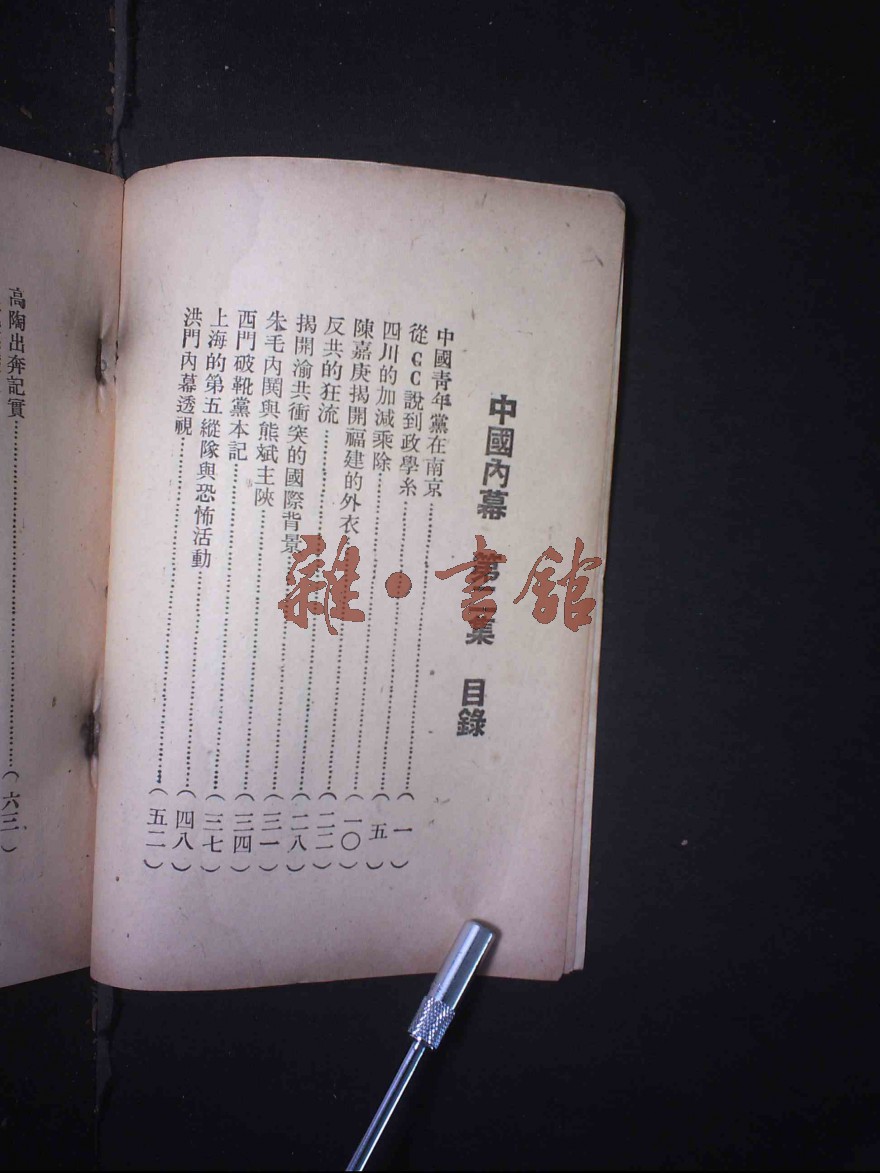 中國內幕 第二集 目錄
中國青年黨在南京……(一)
從CC說到政學系……(五)
四川的加減乘除……(一〇)
陳嘉庚揭開福建的外衣……(二二)
反共的狂流……(二八)
揭開渝共衝突的國際背景……(三一)
朱毛內鬨與熊斌主陝……(三四)
西門破靴黨本記……(三七)
上海的第五縱隊與恐怖活動……(四八)
洪門內幕透視……(五二)
高陶出奔記實……(六三)
雜·書館